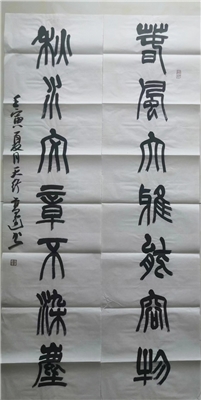 春風大雅能容物
秋水文章不染塵
壬寅夏月天行
書